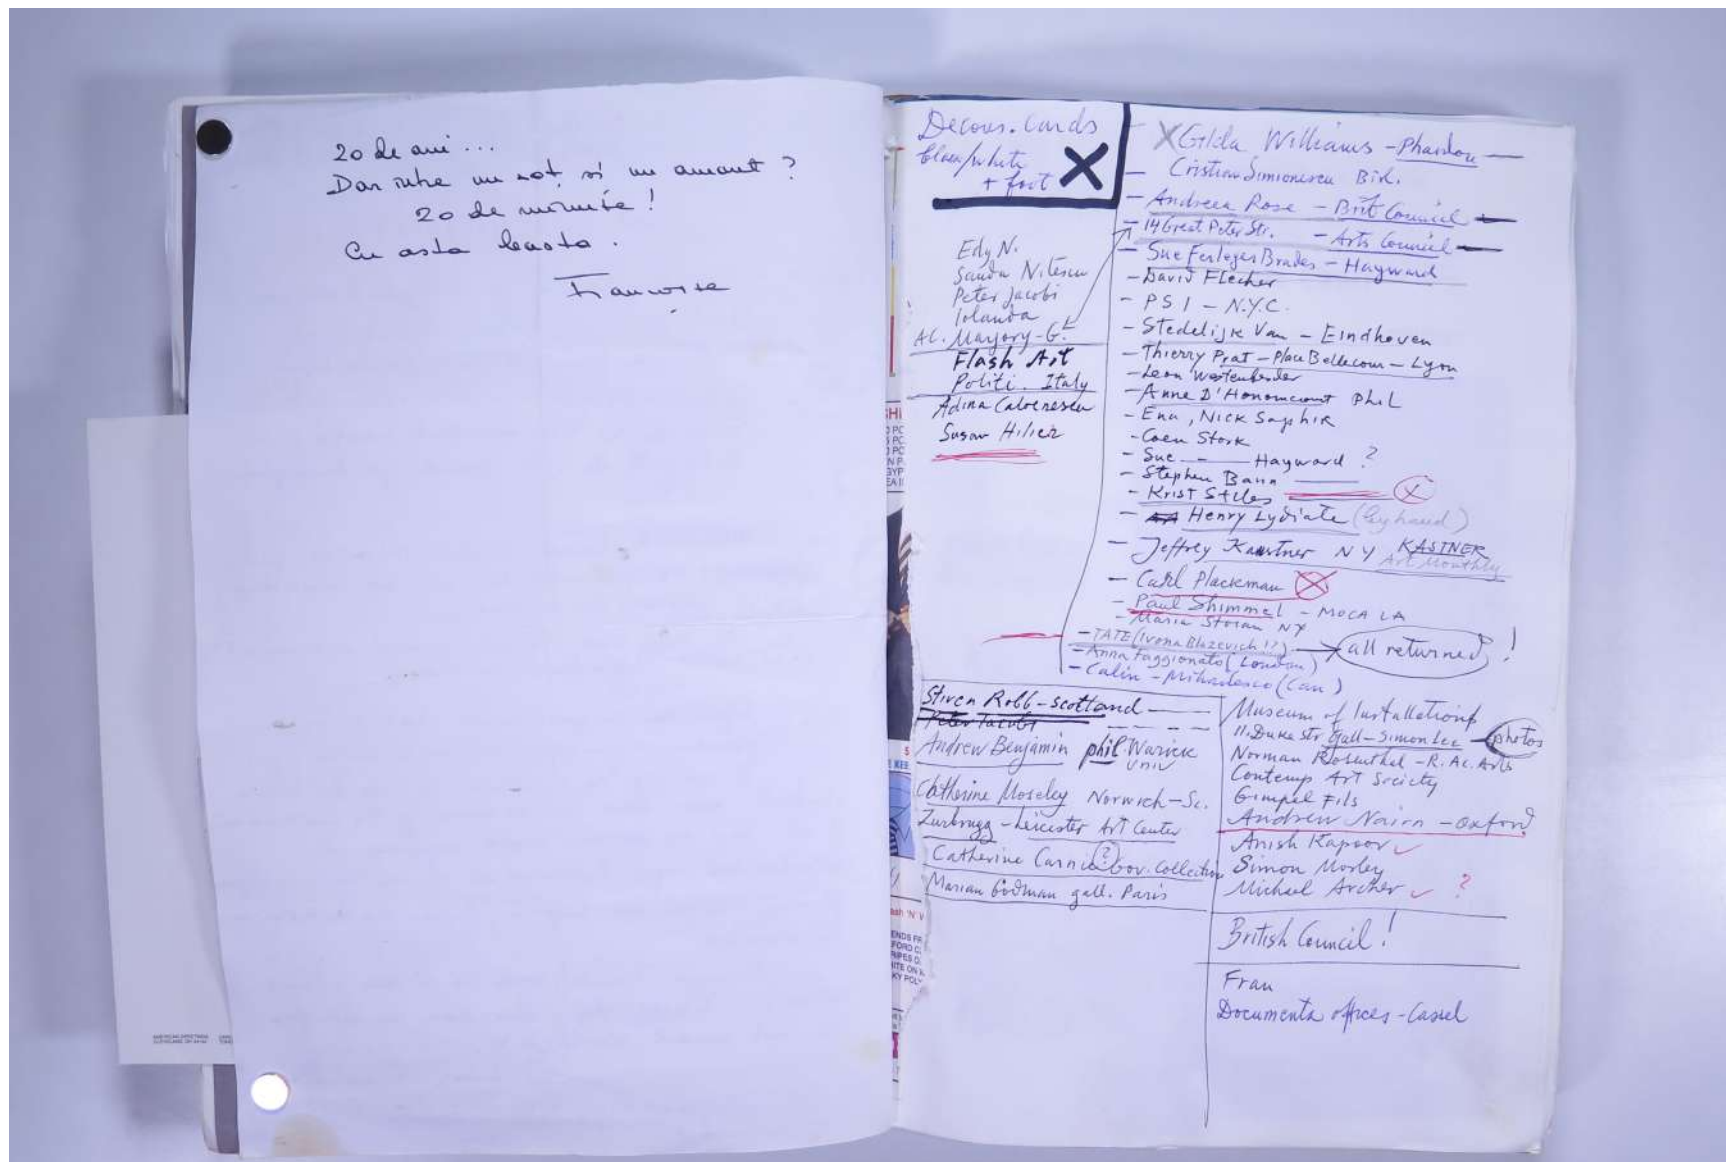 20 de ani...
Dar intre un soț și un amant?
20 de minute!
Cu asta basta.
Françoise
Decous. Cards
black/white
+ foot X
Edy N.
Sanda Nitescu
Peter Jacobi
Iolanda
AC. Marjory-G.
Flash Art
Politi. Italy
Adina
Susan Hilier
X Gilda Williams - Phaidon
- Cristian Simionescu Bîrl.
- Andreea Rose - Brit Council
- 14 Great Peter Str. - Arts Council
- Sue Ferleger Brades - Hayward
- David Flecher
- PS1 - N.Y.C.
- Stedelijk Van - Eindhoven
- Thierry Prat - Place Bellecour - Lyon
- Leon
- Anne D'Honomcourt Phil
- Ena, Nick Saphir
- Coen Stork
- Sue Hayward ?
- Stephen Bann
- Krist Stiles X
- Henry Lydiate (by hand)
- Jeffrey Kastner NY KASTNER
Art Monthly
- Carl Plackman X
- Paul Shimmel - MOCA LA
- Maria NY
- TATE (Ivona Blazevich !?) → all returned !
- Anna Faggionato (London)
- Calin - Mihailesco (Can)
Stiven Robb - Scotland
Peter Jacobi
Andrew Benjamin phil Warick
Univ
Catherine Moseley Norwich - Sc.
Zurbrugg - Leicester Art Center
Catherine ? Gov. Collection
Marian Godman gall. Paris
Museum of Installation
11. Duke Str Gall - Simon Lee - photos
Norman Rosenthal - R. Ac. Arts
Contemp Art Society
Gimpel Fils
Andrew Nairn - Oxford
Anish Kapoor ✓
Simon Morley
Michael Archer ✓ ?
British Council !
Fran
Documenta offices - Cassel